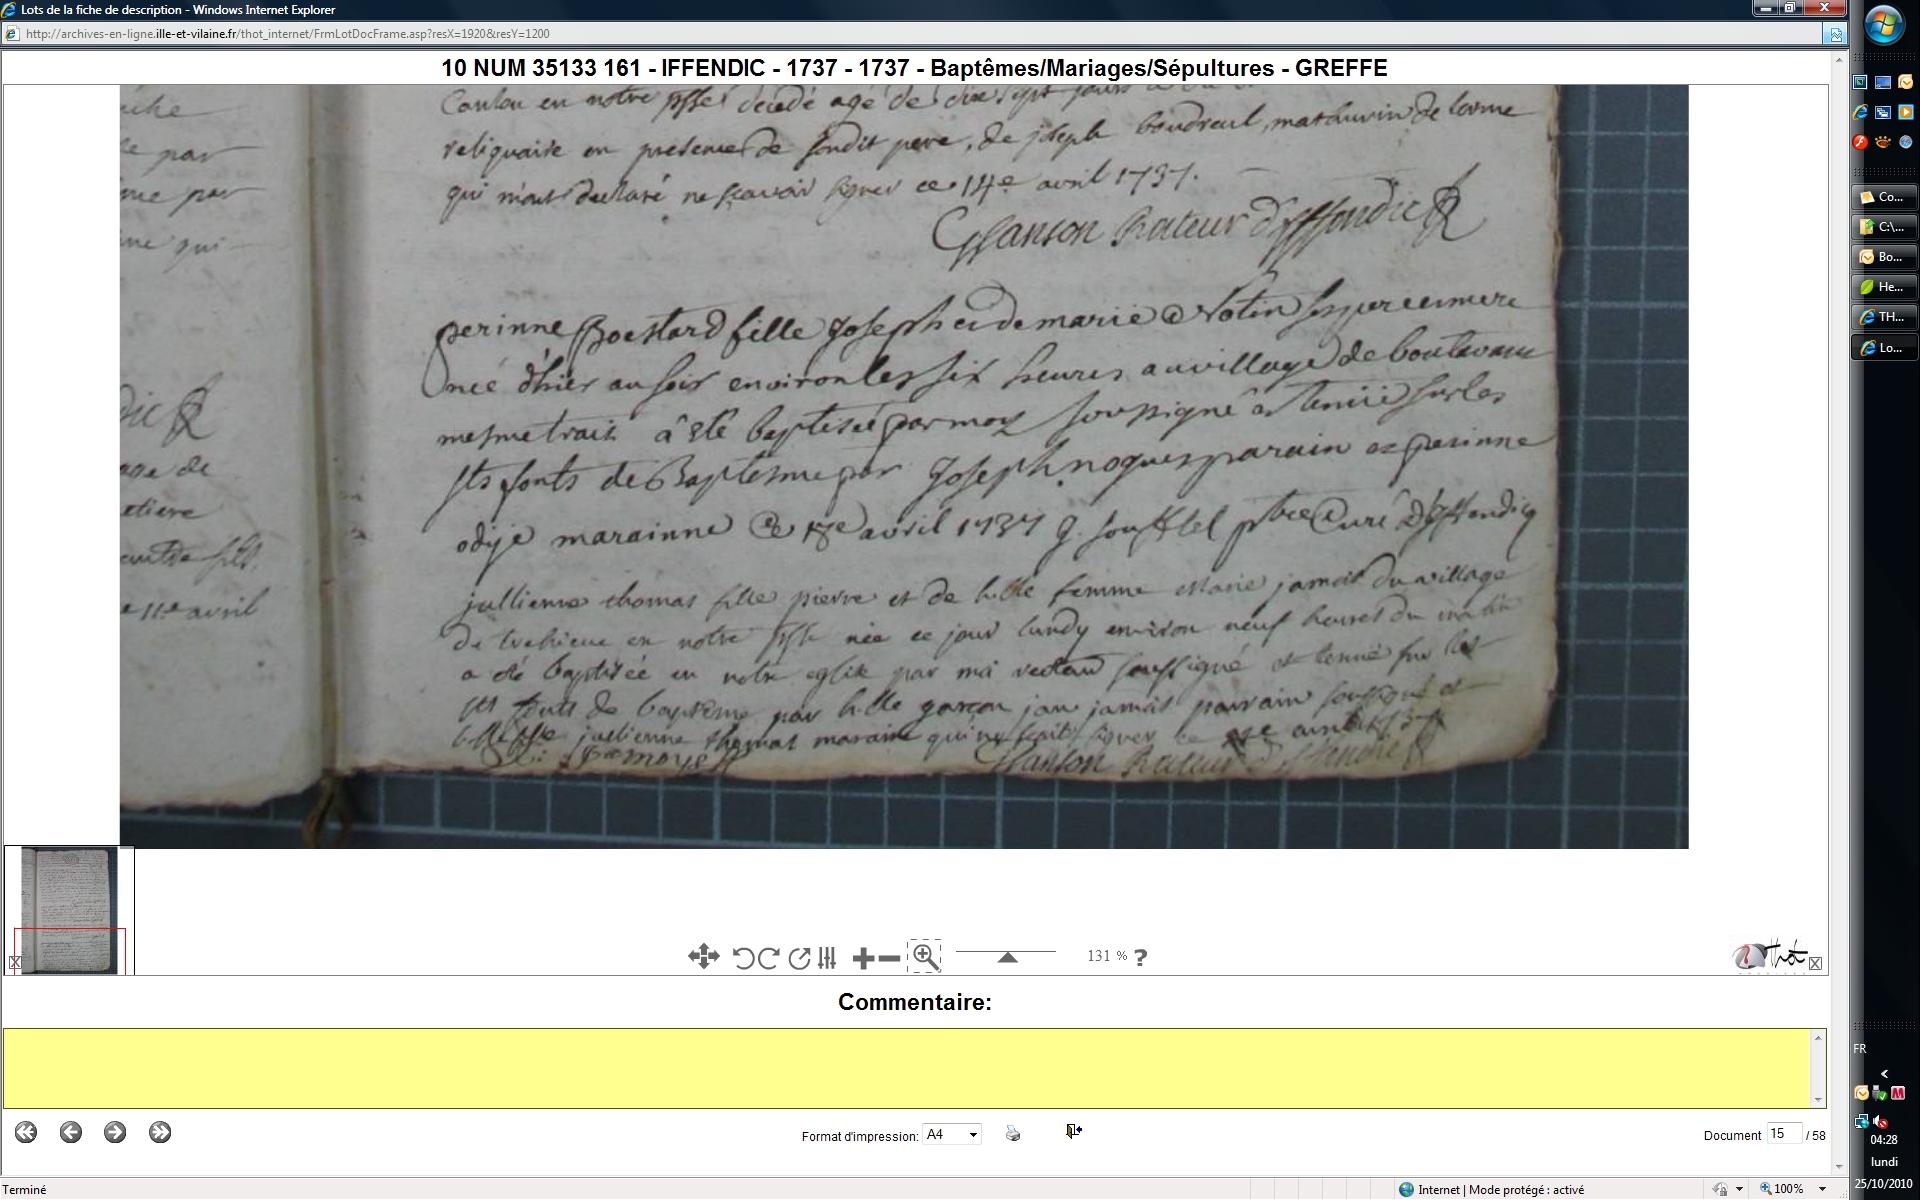 Lots de la fiche de description - Windows Internet Explorer
http://archives-en-ligne.ille-et-vilaine.fr/thot_internet/FrmLotDocFrame.asp?resX=1920&resY=1200
10 NUM 35133 161 - IFFENDIC - 1737 - 1737 - Baptêmes/Mariages/Sépultures - GREFFE
en notre decedé agé de dix sept jours
reliquaire en presence de sondit pere, de joseph boudreul, mathurin de lorme
qui m'ont declaré ne sçavoir signer ce 14e avril 1737.
Recteur d'Iffendic
perinne Boestard fille Joseph et de marie Notin ses pere et mere
née d'hier au soir environ les six heures au village de
mesme trait â eté baptisée par moy soussigné et tenüe sur les
sts fonts de Baptesme par Joseph noques parain et perinne
odye marainne Ce 18e avril 1737 g. soufflel ptre Curé d'Iffendic
jullienne thomas fille pierre et de h. femme Marie jamet du village
de trehieuc en notre née ce jour lundy environ neuf heures du matin
a été baptisée en notre eglise par moi recteur soussigné et tenue sur les
sts fonts de baptême par garçon jan jamet parrain soussigné et
jullienne thomas maraine qui ne sait signer ce avril 1737
Recteur d'Iffendic
che
par
me par
qui
dic
age de
etiere
fils
11e avril
131 % ?
Thot
Commentaire:
Format d'impression: A4
Document 15 / 58
Terminé
Internet | Mode protégé : activé
100%
Co...
C:\...
Bo...
He...
TH...
Lo...
FR
04:28
lundi
25/10/2010